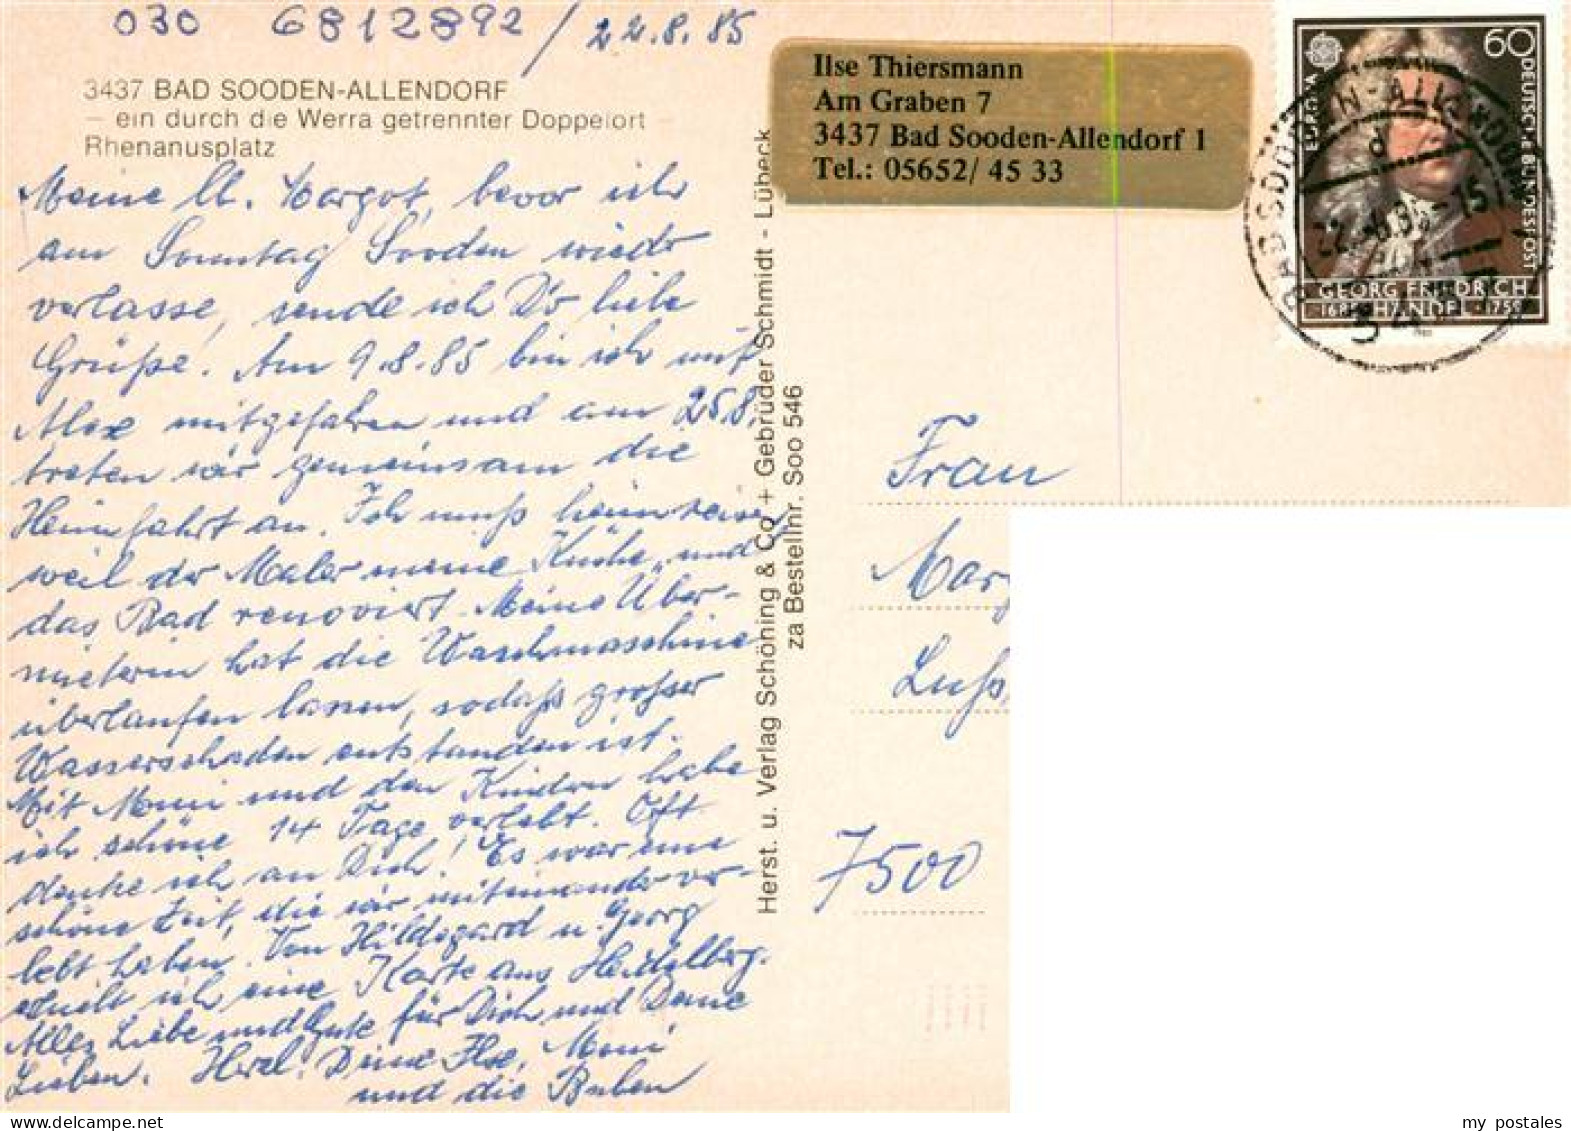 030 6812892 / 22.8.85
3437 BAD SOODEN-ALLENDORF
– ein durch die Werra getrennter Doppelort –
Rhenanusplatz
Meine lb. Margot, bevor ich
am Sonntag Sooden wieder
verlasse, sende ich Dir liebe
Grüße. Am 9.8.85 bin ich mit
Alex mitgefahren und am 25.8.
treten wir gemeinsam die
Heimfahrt an. Ich muß heimreisen
weil der Maler meine Küche und
das Bad renoviert. Meine Über-
mieterin hat die Waschmaschine
überlaufen lassen, sodaß großer
Wasserschaden entstanden ist.
Mit Moni und den Kindern habe
ich schöne 14 Tage verlebt. Oft
denke ich an Dich! Es war eine
schöne Zeit, die wir miteinander ver-
lebt haben. Von Hildegard u. Georg
erhielt ich eine Karte aus Heidelberg.
Alles Liebe und Gute für Dich und Deine
Lieben. Herzl. Deine Ilse, Moni
und die Buben
Herst. u. Verlag Schöning & Co + Gebrüder Schmidt - Lübeck
za Bestellnr. Soo 546
Ilse Thiersmann
Am Graben 7
3437 Bad Sooden-Allendorf 1
Tel.: 05652/ 45 33
60
EUROPA
DEUTSCHE BUNDESPOST
GEORG FRIEDRICH
HÄNDEL · 1759
BAD SOODEN-ALLENDORF
Frau
Marg
Luß
7500
my_postales